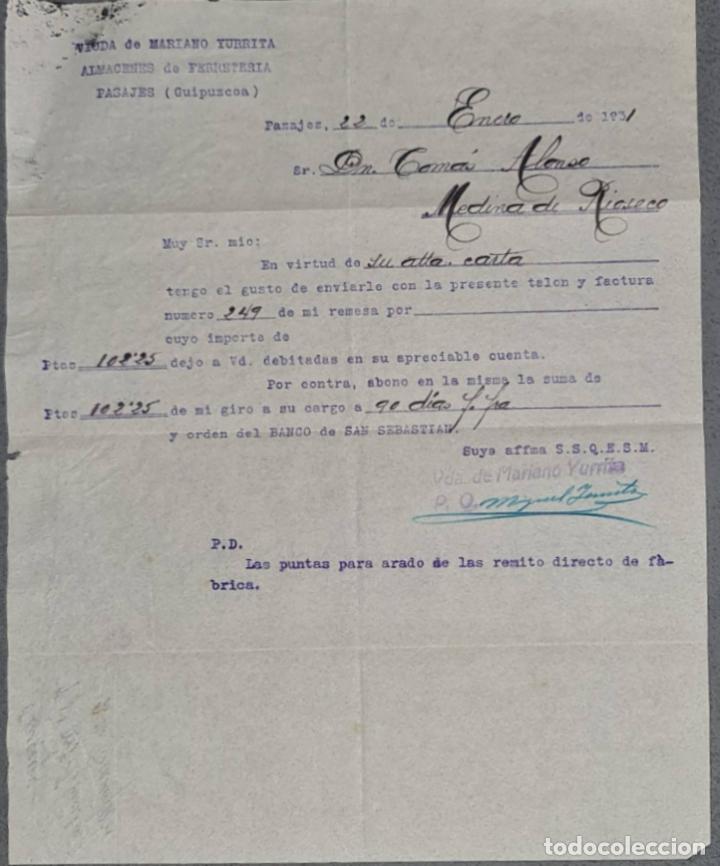 VIUDA de MARIANO YURRITA
ALMACENES de FERRETERIA
PASAJES (Guipuscoa)
Pasajes, 22 de Enero de 1931
Sr. Dn. Tomás Alonso
Medina de Rioseco
Muy Sr. mio:
En virtud de su atta. carta
tengo el gusto de enviarle con la presente talon y factura
numero 249 de mi remesa por
cuyo importe de
Ptas 102'25 dejo a Vd. debitadas en su apreciable cuenta.
Por contra, abono en la misma la suma de
Ptas 102'25 de mi giro a su cargo a 90 días
y orden del BANCO de SAN SEBASTIAN.
Suyo affmo S.S.Q.E.S.M.
Vda. de Mariano Yurrita
P. O. Miguel Yurrita
P.D.
Las puntas para arado de las remito directo de fà-
brica.
todocoleccion